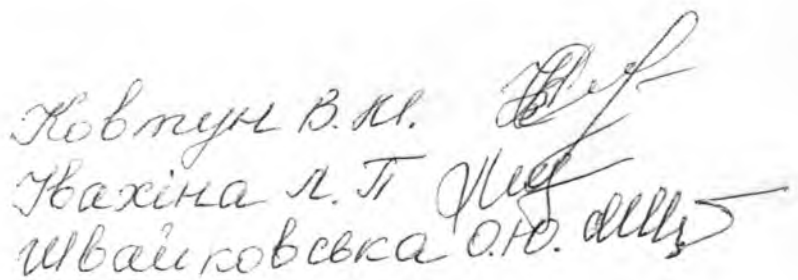 Ковтун В.М.
Івахіна Л.П
Швайковська О.Ю.